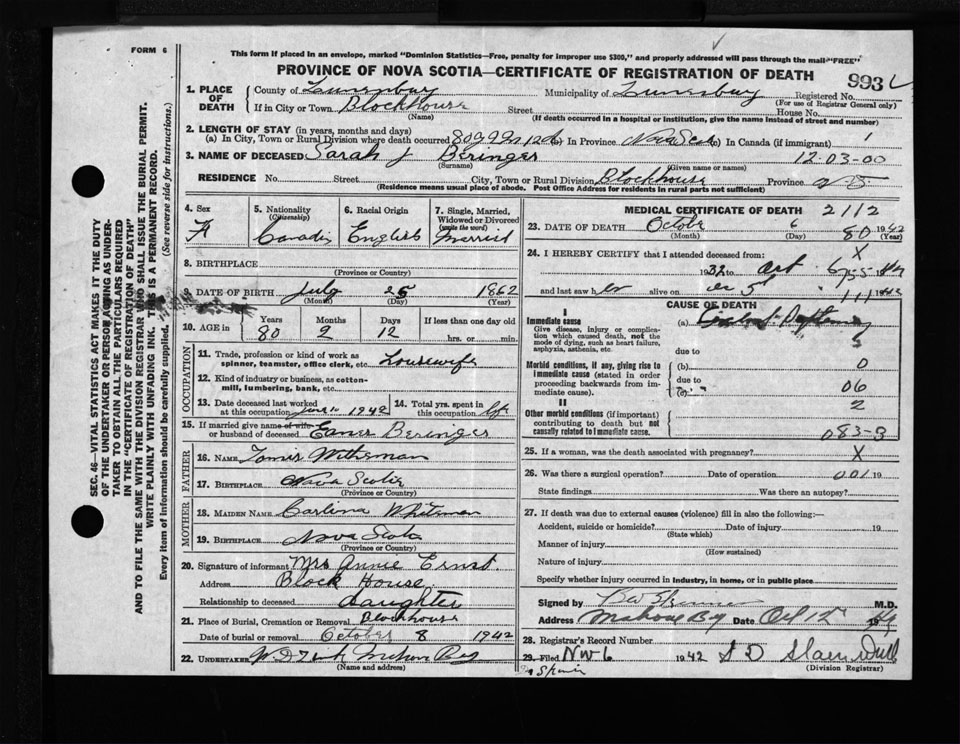 FORM 6
This form if placed in an envelope, marked "Dominion Statistics—Free, penalty for improper use $300," and properly addressed will pass through the mail "FREE"
PROVINCE OF NOVA SCOTIA—CERTIFICATE OF REGISTRATION OF DEATH
993
1. PLACE OF DEATH
County of Lunenburg Municipality of Lunenburg Registered No.
(For use of Registrar General only)
If in City or Town Blockhouse Street House No.
(Name) (If death occurred in a hospital or institution, give the name instead of street and number)
2. LENGTH OF STAY (in years, months and days)
(a) In City, Town or Rural Division where death occurred 80 (b) In Province Nova Scotia (c) In Canada (if immigrant) 1
3. NAME OF DECEASED Sarah J Beringer 12-03-00
(Surname) (Given name or names)
RESIDENCE No. Street City, Town or Rural Division Blockhouse Province NS
(Residence means usual place of abode. Post Office Address for residents in rural parts not sufficient)
SEC. 46—VITAL STATISTICS ACT MAKES IT THE DUTY
OF THE UNDERTAKER OR PERSON ACTING AS UNDER-
TAKER TO OBTAIN ALL THE PARTICULARS REQUIRED
IN THE "CERTIFICATE OF REGISTRATION OF DEATH"
AND TO FILE THE SAME WITH THE DIVISION REGISTRAR WHO SHALL ISSUE THE BURIAL PERMIT.
WRITE PLAINLY WITH UNFADING INK. THIS IS A PERMANENT RECORD.
Every item of information should be carefully supplied. (See reverse side for instructions.)
4. Sex
F
5. Nationality
(Citizenship)
6. Racial Origin
English
7. Single, Married,
Widowed or Divorced
(write the word)
Married
8. BIRTHPLACE
(Province or Country)
9. DATE OF BIRTH July 25 1862
(Month) (Day) (Year)
10. AGE in
Years Months Days If less than one day old
80 2 12 hrs. or min.
OCCUPATION
11. Trade, profession or kind of work as
spinner, teamster, office clerk, etc. Housewife
12. Kind of industry or business, as cotton-
mill, lumbering, bank, etc.
13. Date deceased last worked
at this occupation 1942
14. Total yrs. spent in
this occupation life
15. If married give name of wife
or husband of deceased Beringer
FATHER
16. NAME
17. BIRTHPLACE Nova Scotia
(Province or Country)
MOTHER
18. MAIDEN NAME Carlina Whiteman
19. BIRTHPLACE Nova Scotia
(Province or Country)
20. Signature of informant Mrs Annie Ernst
Address Block House
Relationship to deceased daughter
21. Place of Burial, Cremation or Removal Blockhouse
Date of burial or removal October 8 1942
22. UNDERTAKER
(Name and address)
MEDICAL CERTIFICATE OF DEATH 2112
23. DATE OF DEATH October 6 80 1942
(Month) (Day) (Year)
24. I HEREBY CERTIFY that I attended deceased from: X
19 to 19
and last saw her alive on 19
CAUSE OF DEATH
I
Immediate cause
Give disease, injury or complica-
tion which caused death, not the
mode of dying, such as heart failure,
asphyxia, asthenia, etc.
(a)
due to 5
Morbid conditions, if any, giving rise to
immediate cause (stated in order
proceeding backwards from im-
mediate cause).
(b) 0
due to 06
(c)
II 2
Other morbid conditions (if important)
contributing to death but not
causally related to immediate cause.
083-3
25. If a woman, was the death associated with pregnancy? X
26. Was there a surgical operation? Date of operation 001 19
State findings Was there an autopsy?
27. If death was due to external causes (violence) fill in also the following:—
Accident, suicide or homicide? Date of injury 19
(State which)
Manner of injury
(How sustained)
Nature of injury
Specify whether injury occurred in industry, in home, or in public place
Signed by M.D.
Address Mahone Bay Date Oct 12 19
28. Registrar's Record Number
29. Filed Nov 6 1942
(Division Registrar)